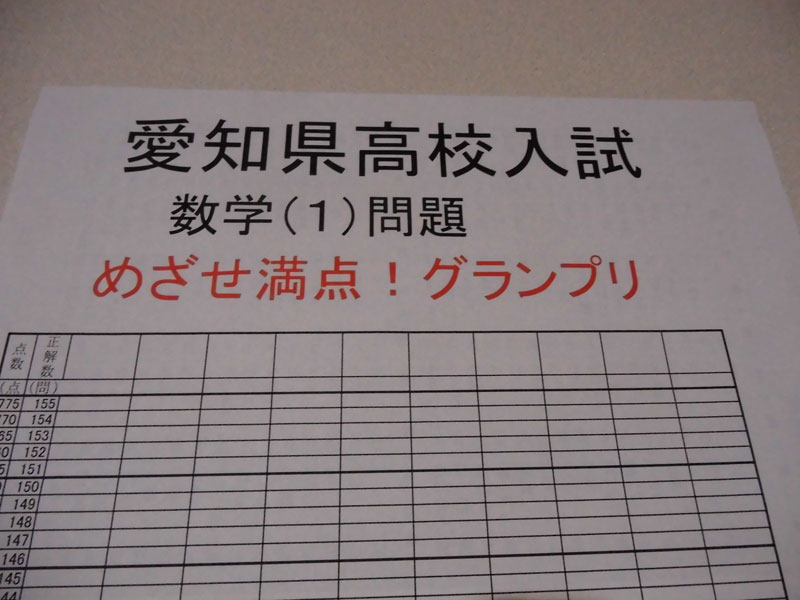 愛知県高校入試
数学(1)問題
めざせ満点!グランプリ
点数 正解数
(点 (問)
775 155
770 154
65 153
60 152
5 151
150
149
148
147
146
145
44